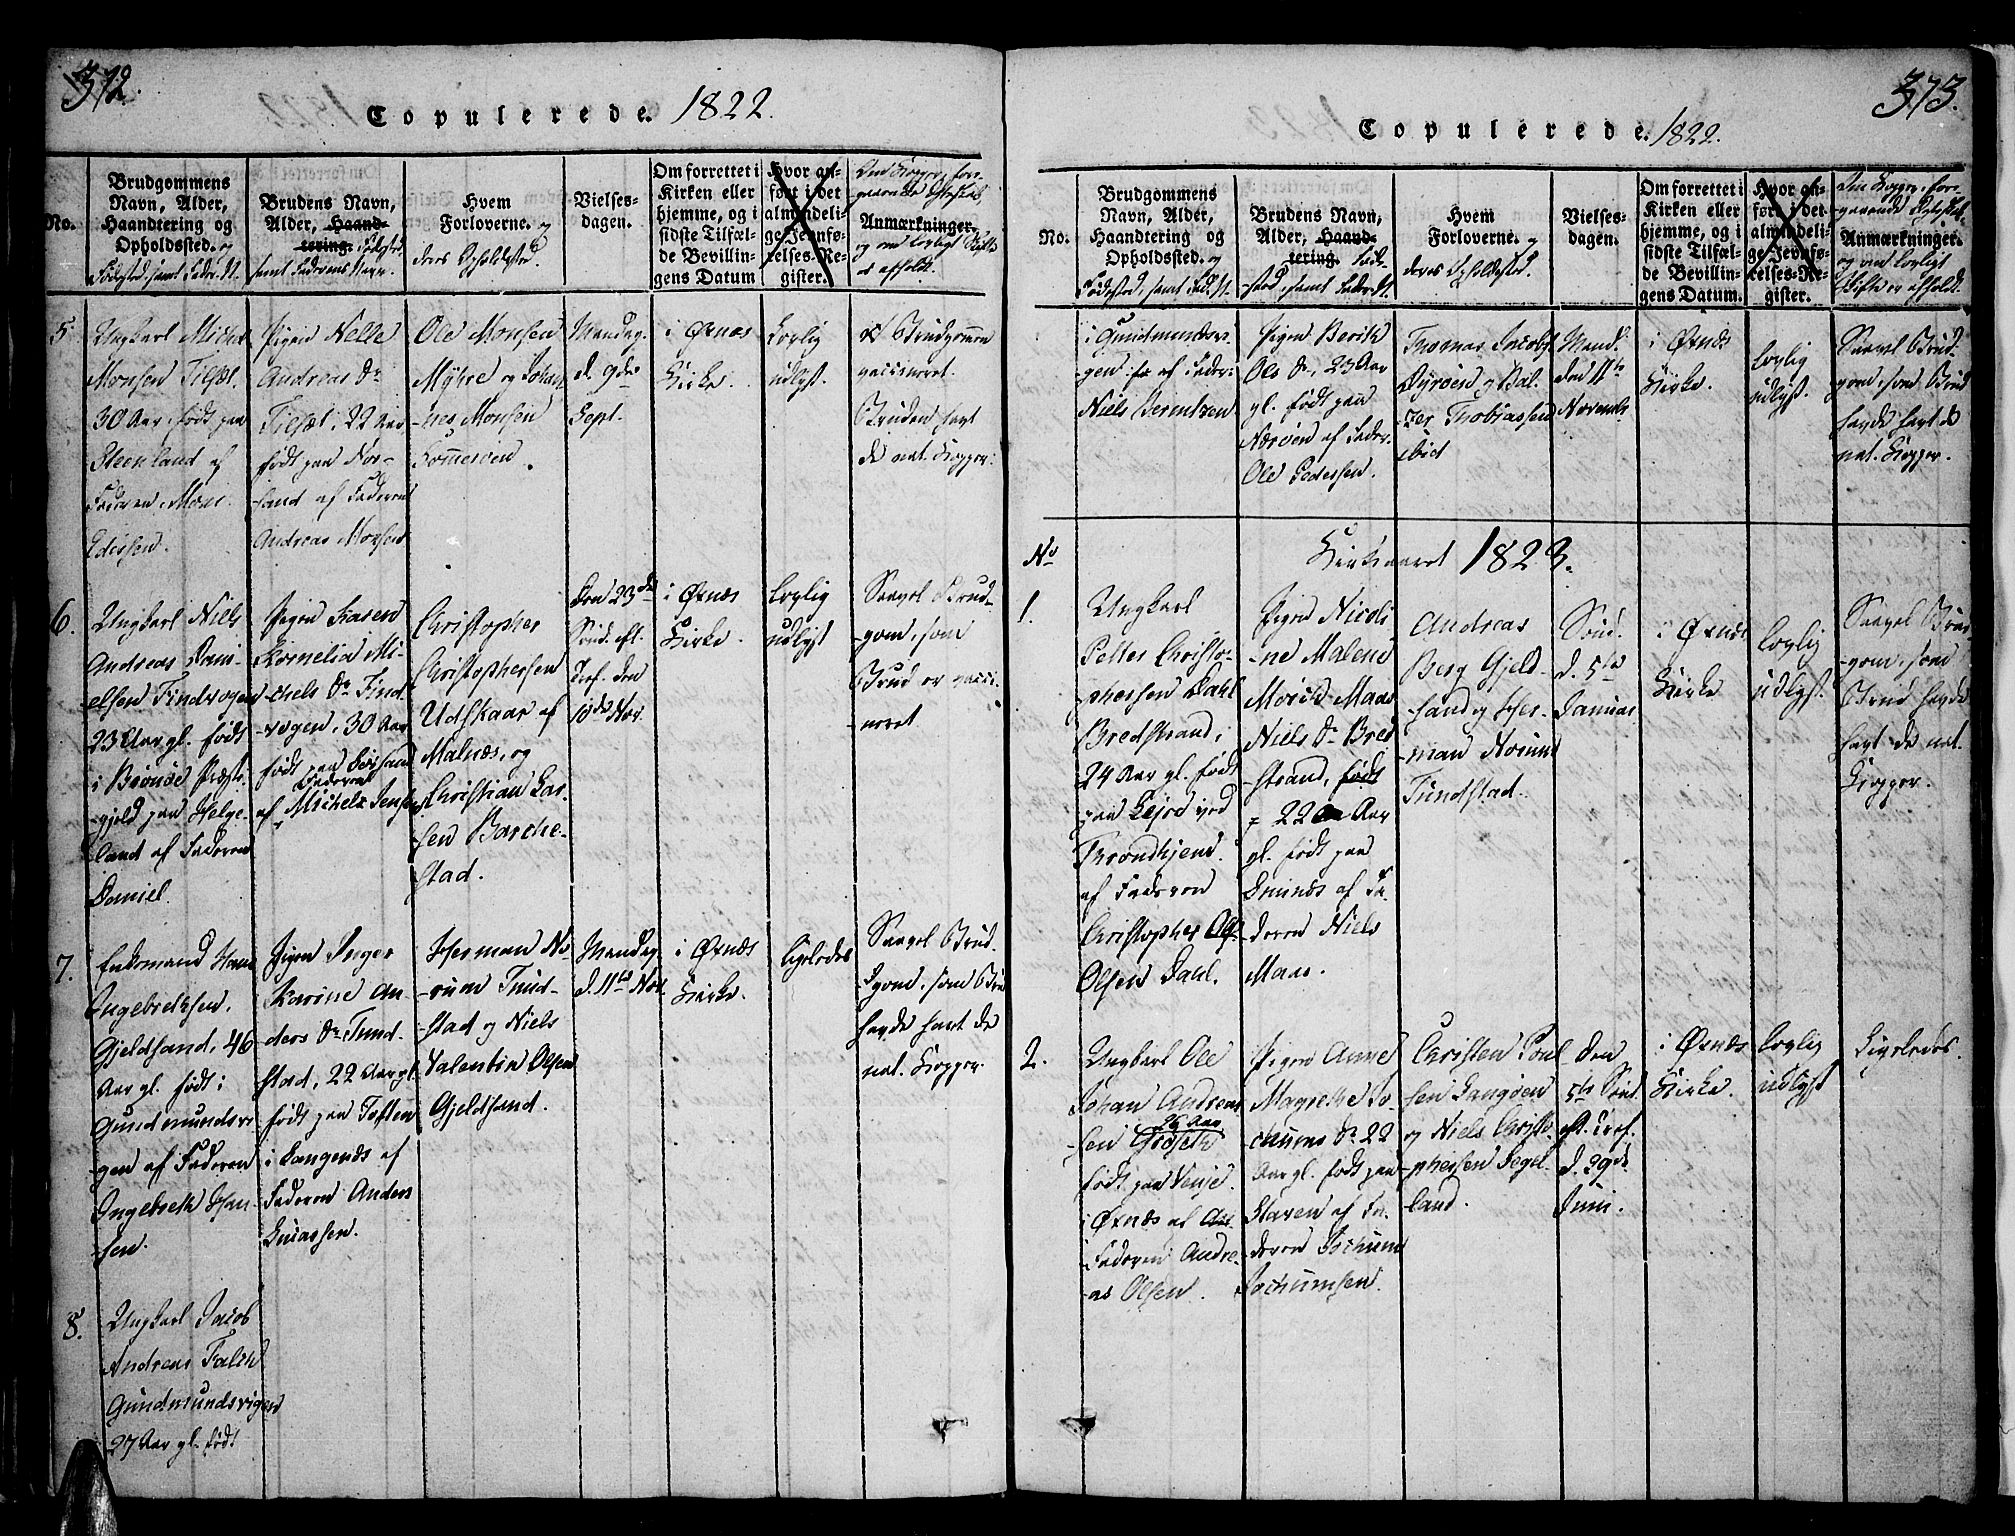 372.
Copulerede. 1822.
No.
Brudgommens
Navn, Alder,
Haandtering og
Opholdssted. og
Fødested, samt Faders N.
Brudens Navn,
Alder, Haand-
tering. Fødested
samt Faderens Navn.
Hvem
Forloverne. og
deres Opholdssted.
Vielses-
dagen.
Om forrettet i
Kirken eller
hjemme, og i
sidste Tilfæl-
de Bevillin-
gens Datum
Hvor an-
ført i det
almindeli-
ge Jevnfø-
relses-Re-
gister.
Anmærkninger.
og om lovligt Skifte
er afholdt.
5.
Ungkarl
Monsen Tilset.
30 Aar, født paa
Steenland af
Faderen Mons
Edissen.
Pigen Nelle
Andreas Dr
Tilset, 22 Aar,
født paa Nor-
sand af Faderen
Andreas Morsen
Ole Monsen
Myhre og Johan-
nes Monsen
Sommerøen.
Mandag.
d. 9de
Sept.
i Øxnæs
Kirke.
Lovlig
udlyst.
Brudgommen
vaccineret.
Bruden havt
de nat. Kopper.
6.
Ungkarl Niels
Andreas Dani-
elsen Tindvogen
23 Aar gl. født
i Brønøe Præste-
gjeld paa Helge-
land af Faderen
Daniel.
Pigen Karen
Kornelia Mi-
chels Dr Tind-
vogen, 30 Aar
født paa
af Faderen Michel Jensen
Christopher
Christophersen
Udskaar af
Malnæs, og
Christian Lar-
sen Barche-
stad.
Den 23de
Sønd. eft.
Tref. den
10de Nov.
i Øxnæs
Kirke.
Lovlig
udlyst
Saavel Brud-
gom, som
Brud er vacci-
neret
7.
Enkemand Hans
Ingebretksen,
Gjeldsand, 46
Aar gl. født i
Gundmundsvi-
gen af Faderen
Ingebreth Han-
sen.
Pigen Inger
Karine An-
ders Dr Tund-
stad, 22 Aar gl.
født paa Toften
i Langenæs af
Faderen Anders
Knassen.
Herman No-
rum Tund-
stad og Niels
Valentin Olsen
Gjeldsand.
Mandag
d. 11te Nov.
i Øxnæs
Kirke.
ligeledes
Saavel Brud-
gom, som Brud
havde havt de
nat. Kopper.
8.
Ungkarl Jacob
Andreas Falch
Gundmundsvigen
27 Aar gl. født
373.
Copulerede. 1822.
No.
Brudgommens
Navn, Alder,
Haandtering og
Opholdssted. og
Fødested, samt Faders N.
Brudens Navn,
Alder, Haand-
tering. Føde-
sted, samt Faders N.
Hvem
Forloverne. og
deres Opholdssted.
Vielses-
dagen.
Om forrettet i
Kirken eller
hjemme, og i
sidste Tilfæl-
de Bevillin-
gens Datum.
Hvor an-
ført i det
almindeli-
ge Jevnfø-
relses-Re-
gister.
Anmærkninger.
og om lovligt
Skifte er afholdt.
i Gundmundsvi-
gen af Fader
Niels Berntzen.
Pigen Berith
Ols Dr, 23 Aar
gl. født paa
Nærøen af Fader
Ole Pedersen.
Thomas Jacobs
Dyrøen og Bal-
zer Thobiassen
ibid
Mand.
den 11te
Novemb.
i Øxnæs
Kirke.
lovlig
udlyst.
Saavel Brud-
gom, som Brud
havde havt de
nat. Kopper.
No
Kirkeaaret 1823.
1.
Ungkarl
Petter Christo-
phersen Dahl
Bredstrand,
24 Aar gl. født
paa Lejre ved
Trondhjem.
af Faderen
Christopher
Olsen Dahl.
Pigen Nicoli-
ne Malene
Morick Maas
Niels Dr Bred-
strand, født
22 Aar
gl. født paa
Smines af Fa-
deren Niels
Maas.
Andreas
Berg Gjeld-
sand og Her-
man Norum
Tundstad.
Sønd.
d. 5te
Januar
i Øxnæs
Kirke
lovlig
udlyst.
Saavel Brud-
gom, som
Brud havde
havt de nat.
Kopper.
2.
Ungkarl Ole
Johan Andreas-
sen Grøseth 26 Aar
født paa Venje
i Øxnæs af
Faderen Andre-
as Olsen.
Pigen Anne
Magrethe Jo-
chums Dr 22
Aar gl. født paa
Staven af Fa-
deren Jochum
Jochumsen.
Christen Poul-
sen Langøen
og Niels Christo-
phersen Segel-
land.
Den
5te Sønd.
eft. Tref.
d. 29de
Juni.
i Øxnæs
Kirke.
lovlig
udlyst
Ligeledes.